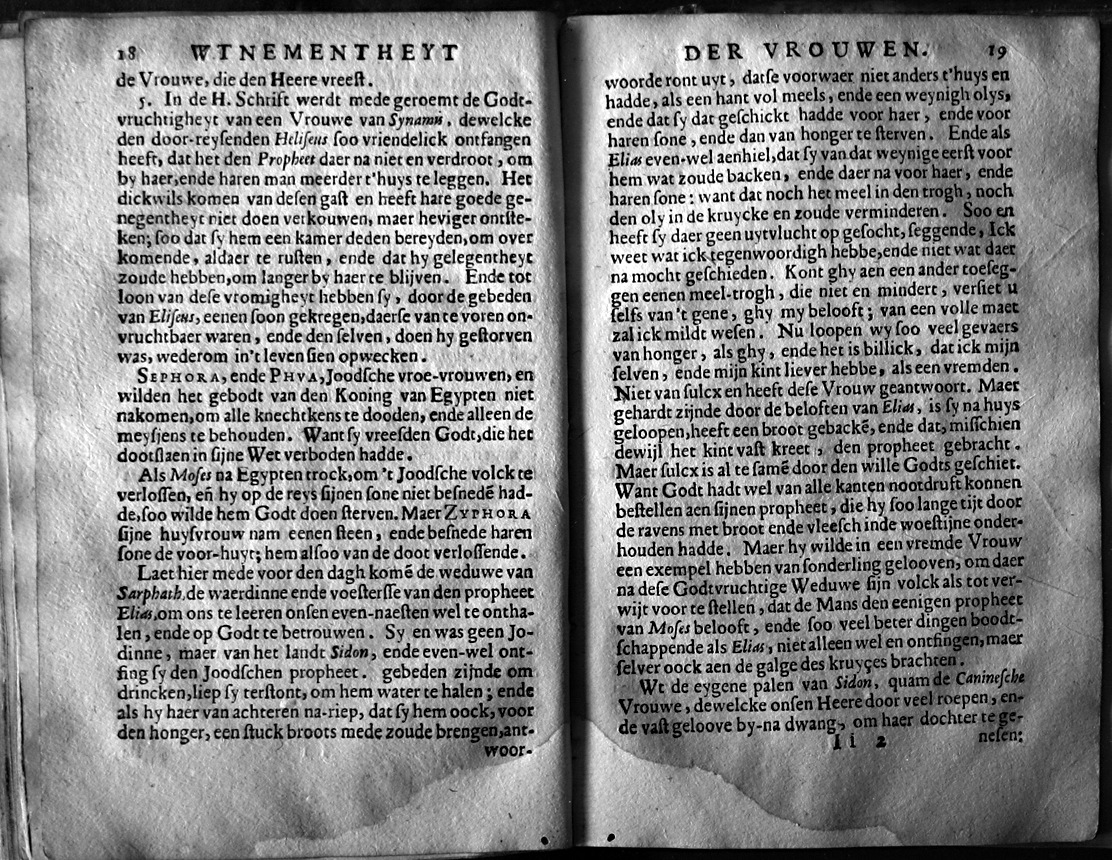 18 WTNEMENTHEYT
de Vrouwe, die den Heere vreeſt.
5. In de H. Schrift werdt mede geroemt de Godt-
vruchtigheyt van een Vrouwe van Synamn, dewelcke
den door-reyſenden Heliſeus ſoo vriendelick ontfangen
heeft, dat het den Propheet daer na niet en verdroot, om
by haer, ende haren man meerder t'huys te leggen. Het
dickwils komen van deſen gaſt en heeft hare goede ge-
negentheyt niet doen verkouwen, maer heviger ontſte-
ken; ſoo dat ſy hem een kamer deden bereyden, om over
komende, aldaer te ruſten, ende dat hy gelegentheyt
zoude hebben, om langer by haer te blijven. Ende tot
loon van deſe vromigheyt hebben ſy, door de gebeden
van Eliſeus, eenen ſoon gekregen, daerſe van te voren on-
vruchtbaer waren, ende den ſelven, doen hy geſtorven
was, wederom in't leven ſien opwecken.
SEPHORA, ende PHVA, Joodſche vroe-vrouwen, en
wilden het gebodt van den Koning van Egypten niet
nakomen, om alle knechtkens te dooden, ende alleen de
meyſjens te behouden. Want ſy vreeſden Godt, die het
dootſlaen in ſijne Wet verboden hadde.
Als Moſes na Egypten trock, om 't Joodſche volck te
verloſſen, en̄ hy op de reys ſijnen ſone niet beſnedē had-
de, ſoo wilde hem Godt doen ſterven. Maer ZYPHORA
ſijne huyſvrouw nam eenen ſteen, ende beſnede haren
ſone de voor-huyt; hem alſoo van de doot verloſſende.
Laet hier mede voor den dagh komē de weduwe van
Sarphath, de waerdinne ende voeſterſſe van den propheet
Elias, om ons te leeren onſen even-naeſten wel te ontha-
len, ende op Godt te betrouwen. Sy en was geen Jo-
dinne, maer van het landt Sidon, ende even-wel ont-
fing ſy den Joodſchen propheet. gebeden zijnde om
drincken, liep ſy terſtont, om hem water te halen; ende
als hy haer van achteren na-riep, dat ſy hem oock, voor
den honger, een ſtuck broots mede zoude brengen, ant-
woor-
DER VROUWEN. 19
woorde ront uyt, datſe voorwaer niet anders t'huys en
hadde, als een hant vol meels, ende een weynigh olys,
ende dat ſy dat geſchickt hadde voor haer, ende voor
haren ſone, ende dan van honger te ſterven. Ende als
Elias even-wel aenhiel, dat ſy van dat weynige eerſt voor
hem wat zoude backen, ende daer na voor haer, ende
haren ſone: want dat noch het meel in den trogh, noch
den oly in de kruycke en zoude verminderen. Soo en
heeft ſy daer geen uytvlucht op geſocht, ſeggende, Ick
weet wat ick tegenwoordigh hebbe, ende niet wat daer
na mocht geſchieden. Kont ghy aen een ander toeſeg-
gen eenen meel-trogh, die niet en mindert, verſiet u
ſelfs van't gene, ghy my belooft; van een volle maet
zal ick mildt weſen. Nu loopen wy ſoo veel gevaers
van honger, als ghy, ende het is billick, dat ick mijn
ſelven, ende mijn kint liever hebbe, als een vremden.
Niet van ſulcx en heeft deſe Vrouw geantwoort. Maer
gehardt zijnde door de beloften van Elias, is ſy na huys
geloopen, heeft een broot gebackē, ende dat, miſſchien
dewijl het kint vaſt kreet, den propheet gebracht.
Maer ſulcx is al te ſamē door den wille Godts geſchiet.
Want Godt hadt wel van alle kanten nootdruft konnen
beſtellen aen ſijnen propheet, die hy ſoo lange tijt door
de ravens met broot ende vleeſch inde woeſtijne onder-
houden hadde. Maer hy wilde in een vremde Vrouw
een exempel hebben van ſonderling gelooven, om daer
na deſe Godtvruchtige Weduwe ſijn volck als tot ver-
wijt voor te ſtellen, dat de Mans den eenigen propheet
van Moſes belooft, ende ſoo veel beter dingen boodt-
ſchappende als Elias, niet alleen wel en ontfingen, maer
ſelver oock aen de galge des kruyçes brachten.
Wt de eygene palen van Sidon, quam de Canineſche
Vrouwe, dewelcke onſen Heere door veel roepen, en-
de vaſt geloove by-na dwang, om haer dochter te ge-
Ii 2 neſen: